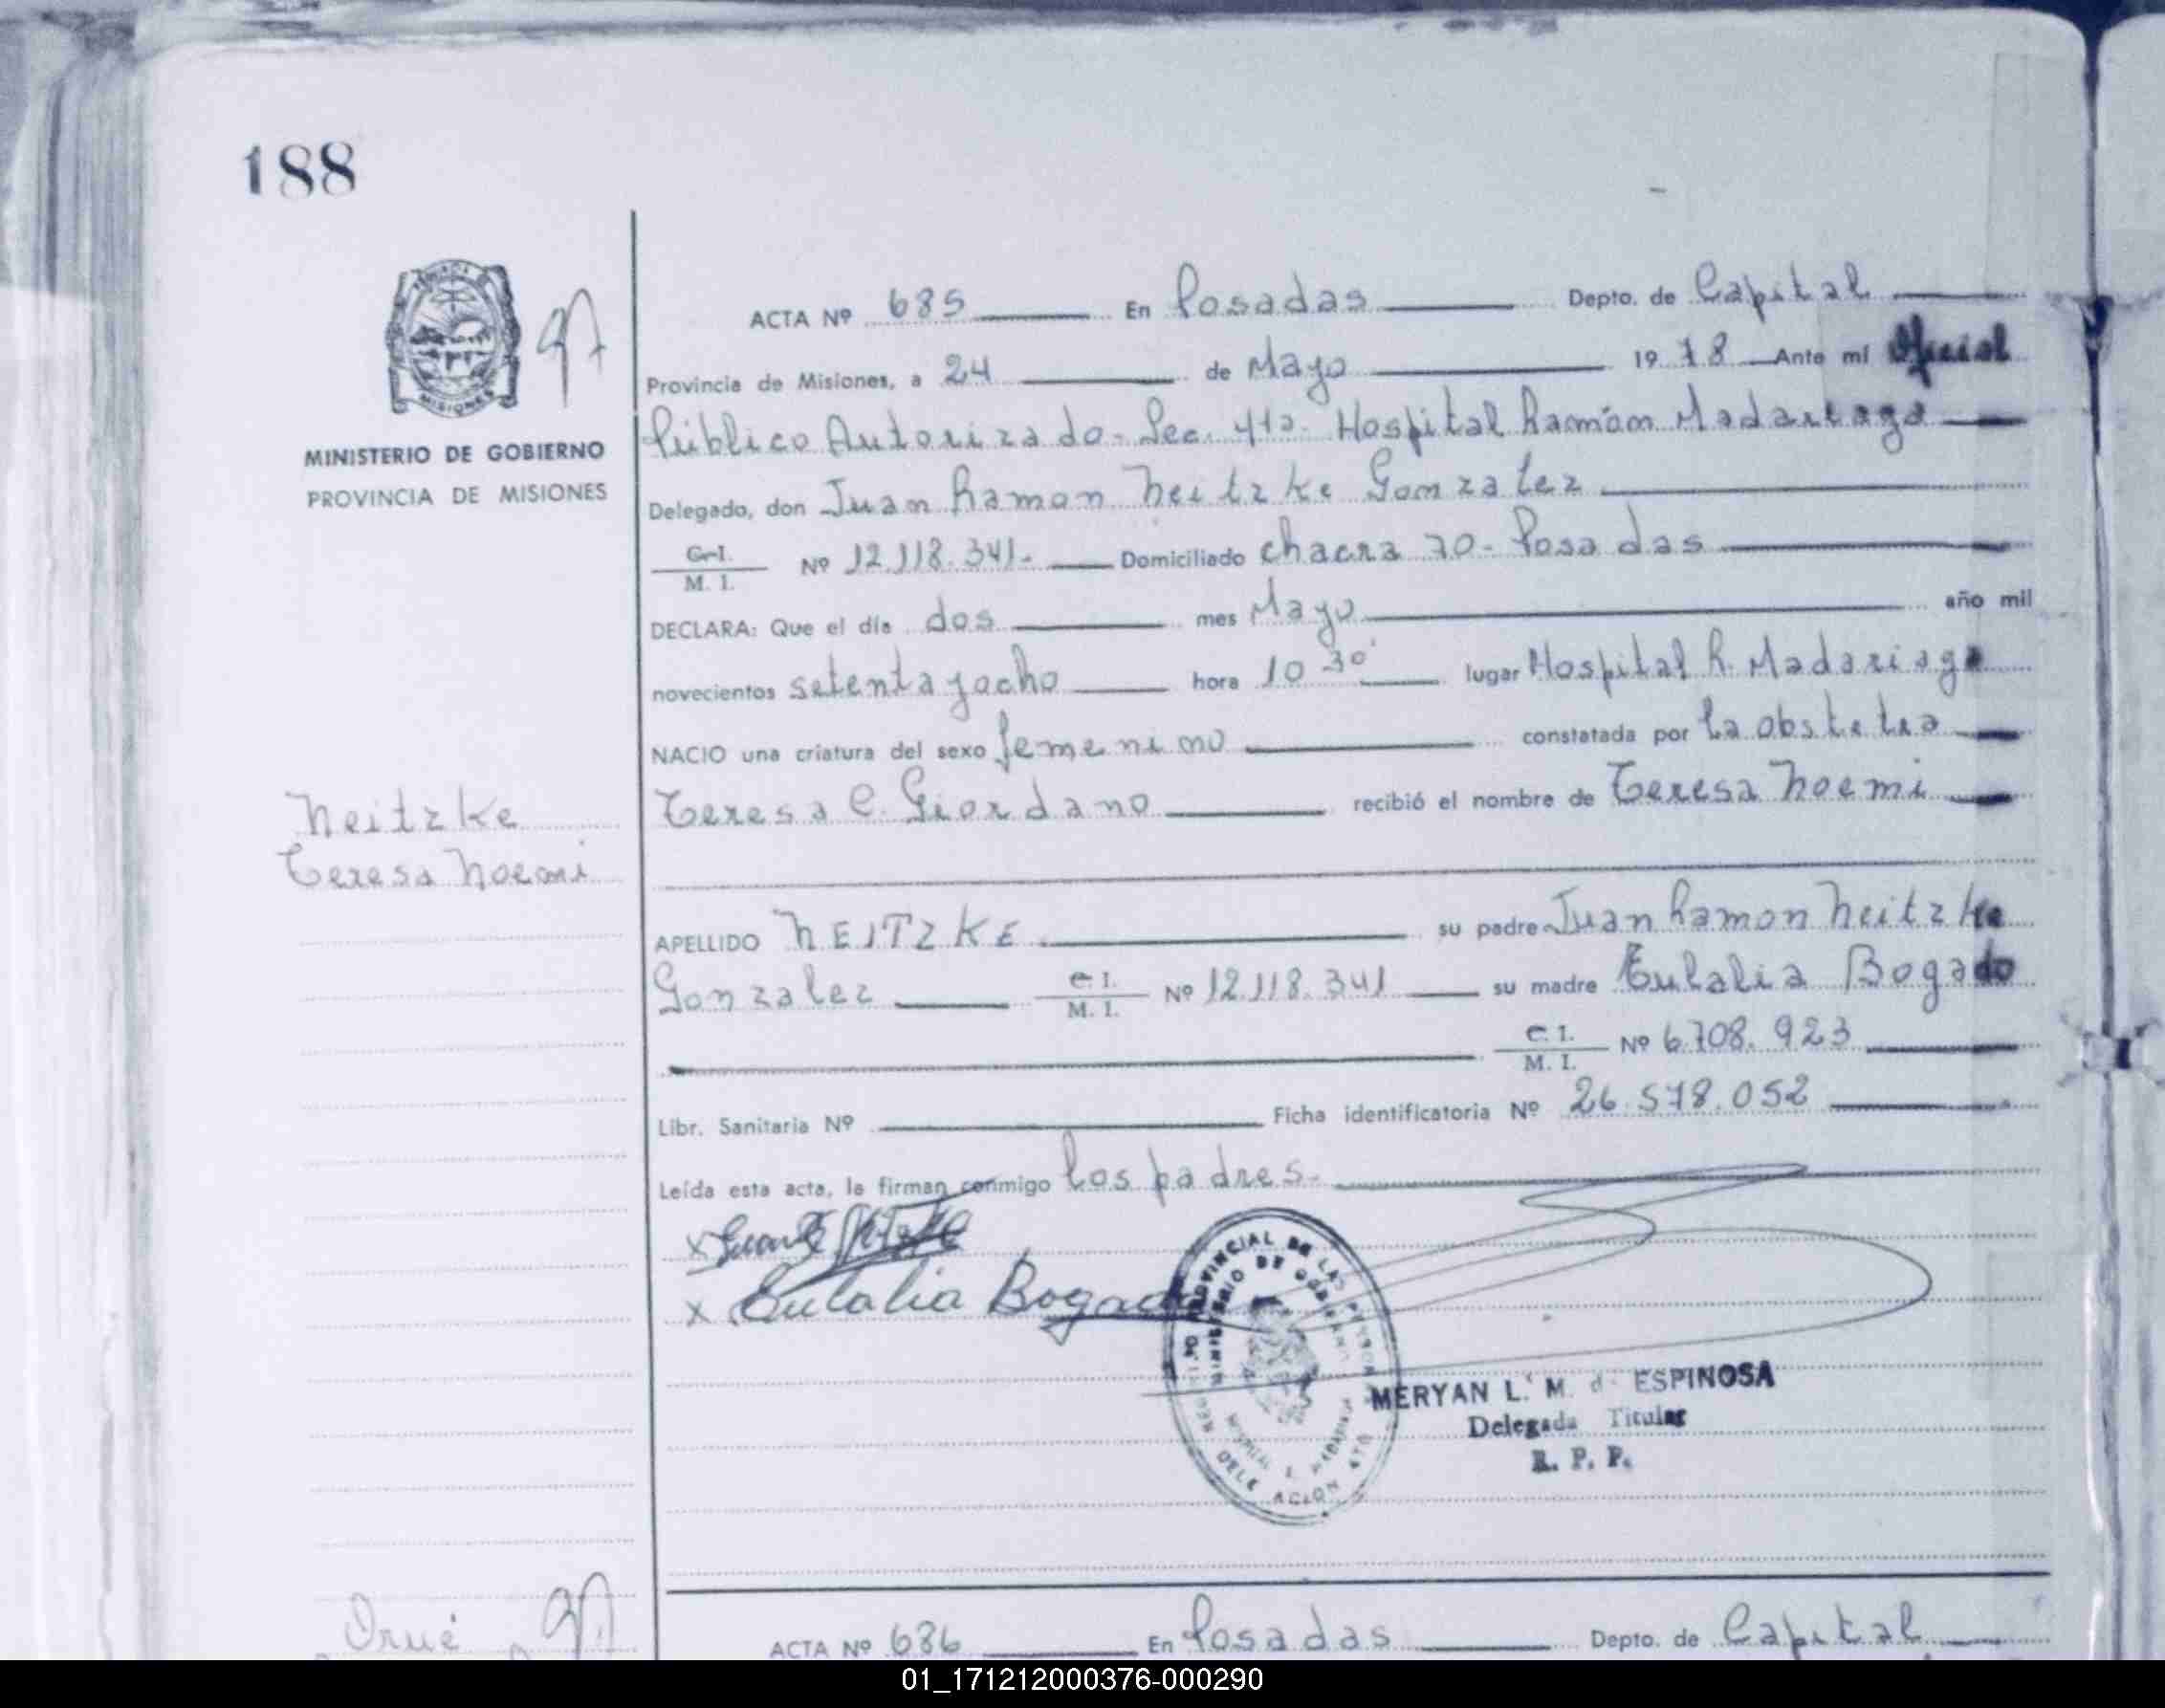 188
MISIONES
MINISTERIO DE GOBIERNO
PROVINCIA DE MISIONES
ACTA Nº 685 En Posadas Depto. de Capital
Provincia de Misiones, a 24 de Mayo 1978 Ante mí Oficial
Público Autorizado - Sec. 4ta. Hospital Ramón Madariaga
Delegado, don Juan Ramon Neitzke Gonzalez
C. I.
M. I. Nº 12.118.341.- Domiciliado chacra 70 - Posadas
DECLARA: Que el día dos mes Mayo año mil
novecientos setenta y ocho hora 10 30' lugar Hospital R. Madariaga
NACIO una criatura del sexo femenino constatada por La obstetra
Teresa C. Giordano recibió el nombre de Teresa Noemi
Neitzke
Teresa Noemi
APELLIDO NEITZKE su padre Juan Ramon Neitzke
Gonzalez C. I. M. I. Nº 12.118.341 su madre Eulalia Bogado
C. I. M. I. Nº 6.708.923
Libr. Sanitaria Nº Ficha identificatoria Nº 26.578.052
Leída esta acta, la firman conmigo los padres.-
x
x Eulalia Bogado
PROVINCIAL DE LAS
MINISTERIO DE GOBIERNO
MERYAN L. M. d ESPINOSA
Delegada Titular
R. P. P.
Orué
ACTA Nº 686 En Posadas Depto. de Capital
01_171212000376-000290